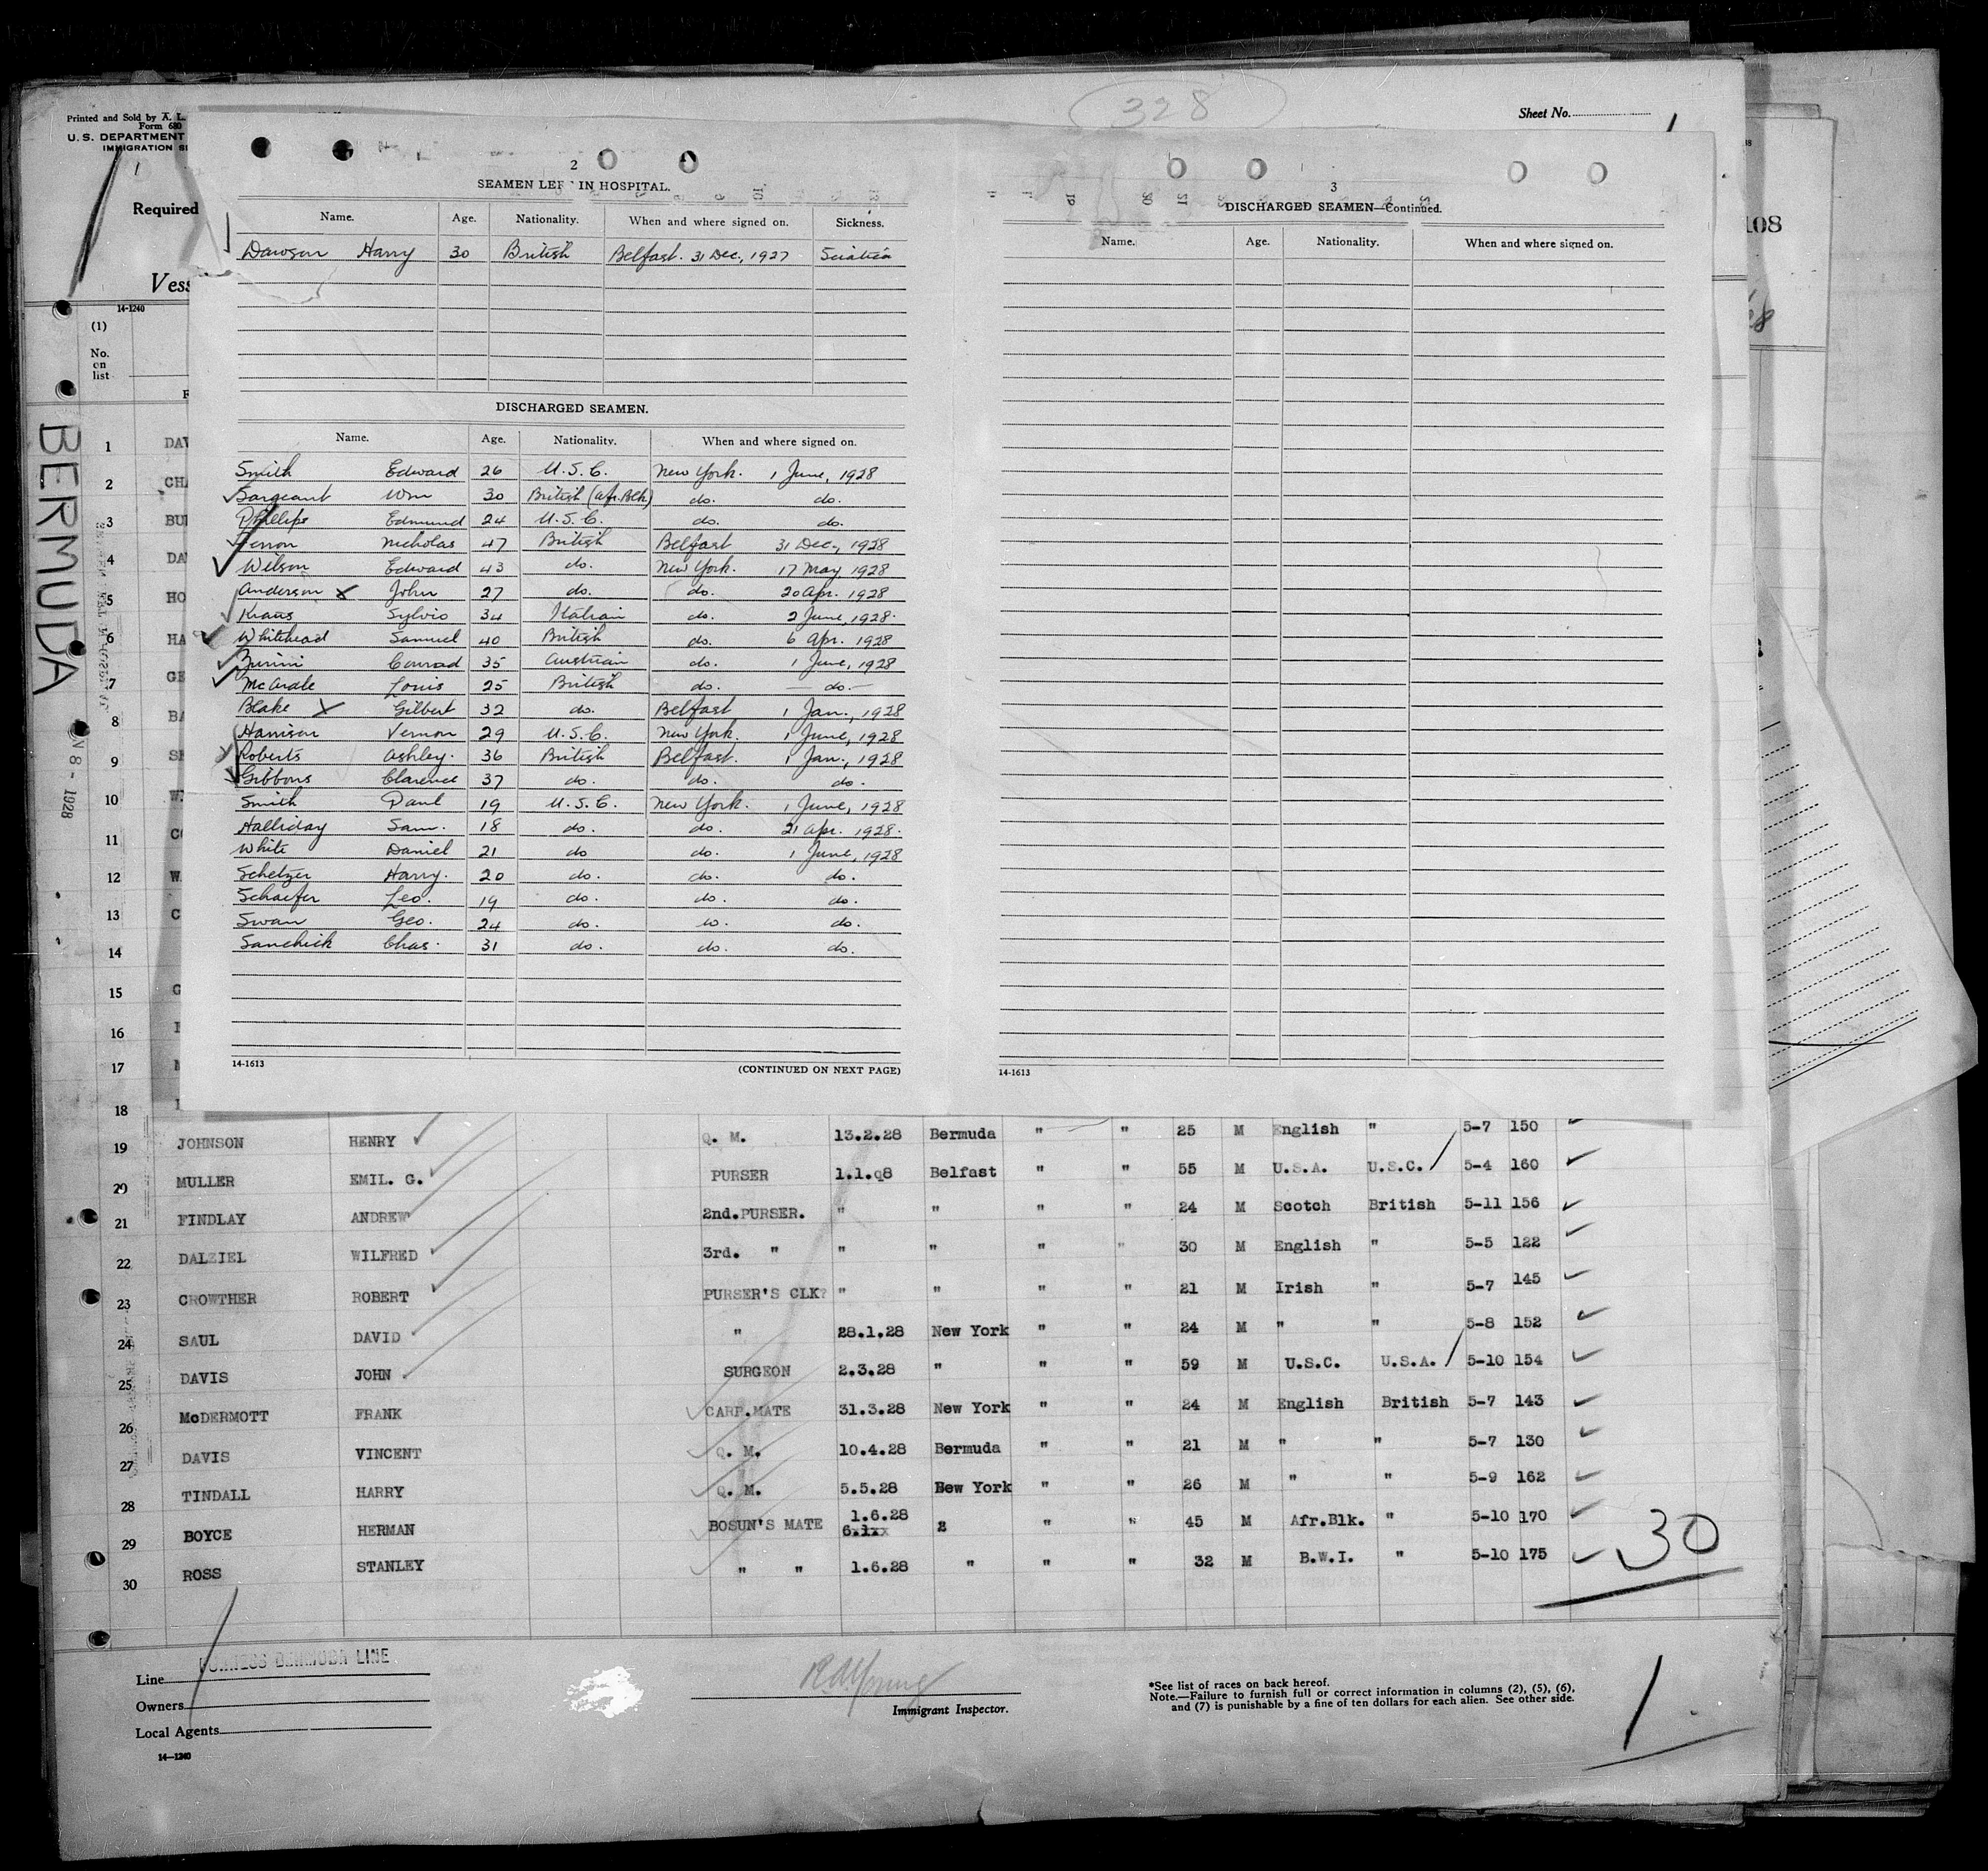 328
Printed and Sold by A. L.
Form 680
U. S. DEPARTMENT
IMMIGRATION
Sheet No. 1
Required
Vess
14-1240
(1)
No. on list
BERMUDA
8 - 1928
108
2
SEAMEN LEFT IN HOSPITAL.
Name. Age. Nationality. When and where signed on. Sickness.
Dawson Harry 30 British Belfast. 31 Dec., 1927 Sciatica
DISCHARGED SEAMEN.
Name. Age. Nationality. When and where signed on.
Smith Edward 26 U.S.C. New York. 1 June, 1928
Sargeant Wm 30 British (Afr. Blk) do. do.
Phillips Edmund 24 U.S.C. do. do.
Nicholas 47 British Belfast 31 Dec., 1928
Wilson Edward 43 do. New York. 17 May, 1928
Anderson x John 27 do. do. 20 Apr. 1928
Kraus Sylvio 34 Italian do. 2 June, 1928.
Whitehead Samuel 40 British do. 6 Apr. 1928
Conrad 35 Austrian do. 1 June, 1928
McArdle Louis 25 British do. — do. —
Blake x Gilbert 32 do. Belfast 1 Jan., 1928
Harrison Vernon 29 U.S.C. New York. 1 June, 1928
Roberts Ashley. 36 British Belfast. 1 Jan., 1928
Gibbons Clarence 37 do. do. do.
Smith Paul 19 U.S.C. New York. 1 June, 1928
Halliday Sam. 18 do. do. 21 Apr. 1928.
White Daniel 21 do do. 1 June, 1928
Schetzer Harry. 20 do. do. do.
Schaefer Leo. 19 do. do. do.
Swan Geo. 24 do. do. do.
Sanchick Chas. 31 do. do. do.
14-1613 (CONTINUED ON NEXT PAGE)
3
DISCHARGED SEAMEN—Continued.
Name. Age. Nationality. When and where signed on.
14-1613
1 DAV
2 CHA
3 BU
4 DA
5 HO
6 HA
7 GE
8 BA
9 S
10 W
11 CO
12 WA
13 C
14
15 G
16
17
18
19 JOHNSON HENRY Q. M. 13.2.28 Bermuda " " 25 M English " 5-7 150
20 MULLER EMIL. G. PURSER 1.1.q8 Belfast " " 55 M U.S.A. U.S.C. 5-4 160
21 FINDLAY ANDREW 2nd.PURSER. " " " " 24 M Scotch British 5-11 156
22 DALZIEL WILFRED 3rd. " " " " " 30 M English " 5-5 122
23 CROWTHER ROBERT PURSER'S CLK? " " " " 21 M Irish " 5-7 145
24 SAUL DAVID " 28.1.28 New York " " 24 M " " 5-8 152
25 DAVIS JOHN SURGEON 2.3.28 " " " 59 M U.S.C. U.S.A. 5-10 154
26 McDERMOTT FRANK CARP.MATE 31.3.28 New York " " 24 M English British 5-7 143
27 DAVIS VINCENT Q. M. 10.4.28 Bermuda " " 21 M " " 5-7 130
28 TINDALL HARRY Q. M. 5.5.28 Bew York " " 26 M " " 5-9 162
29 BOYCE HERMAN BOSUN'S MATE 1.6.28 2 " " 45 M Afr.Blk. " 5-10 170
30 ROSS STANLEY " " 1.6.28 " " " 32 M B.W.I. " 5-10 175
30
Line FURNESS BERMUDA LINE
Owners
Local Agents
14—1240
Immigrant Inspector.
*See list of races on back hereof.
Note.—Failure to furnish full or correct information in columns (2), (5), (6),
and (7) is punishable by a fine of ten dollars for each alien. See other side.
1.